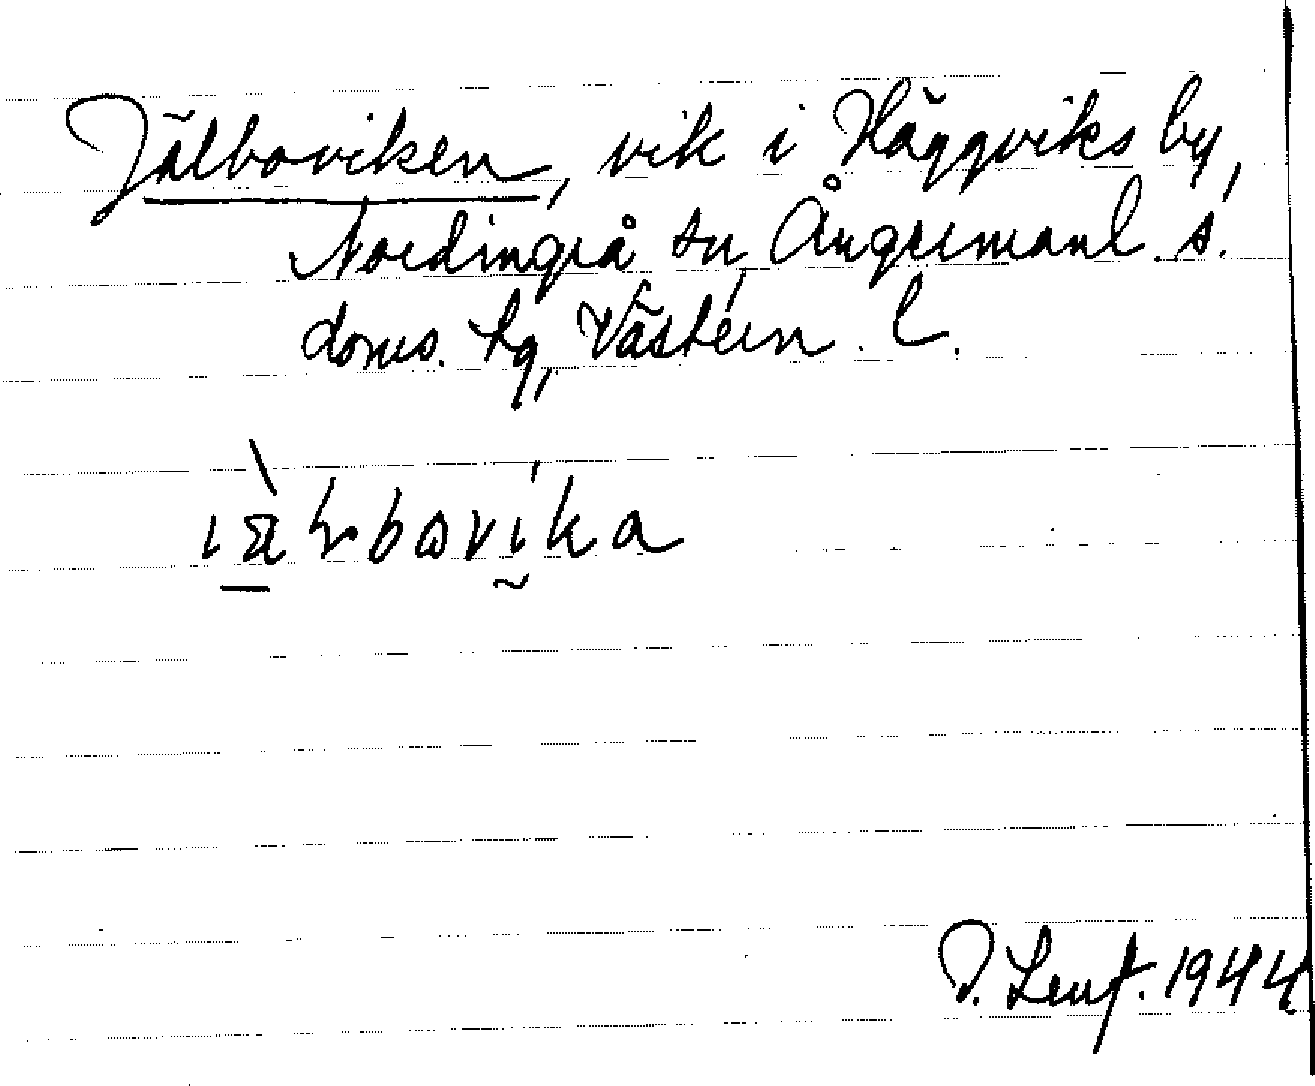 Jälboviken, vik i Häggviks by,
Nordingrå sn, Ångermanl. s.
doms. tg, Västern. l.
O. Leuf. 1944